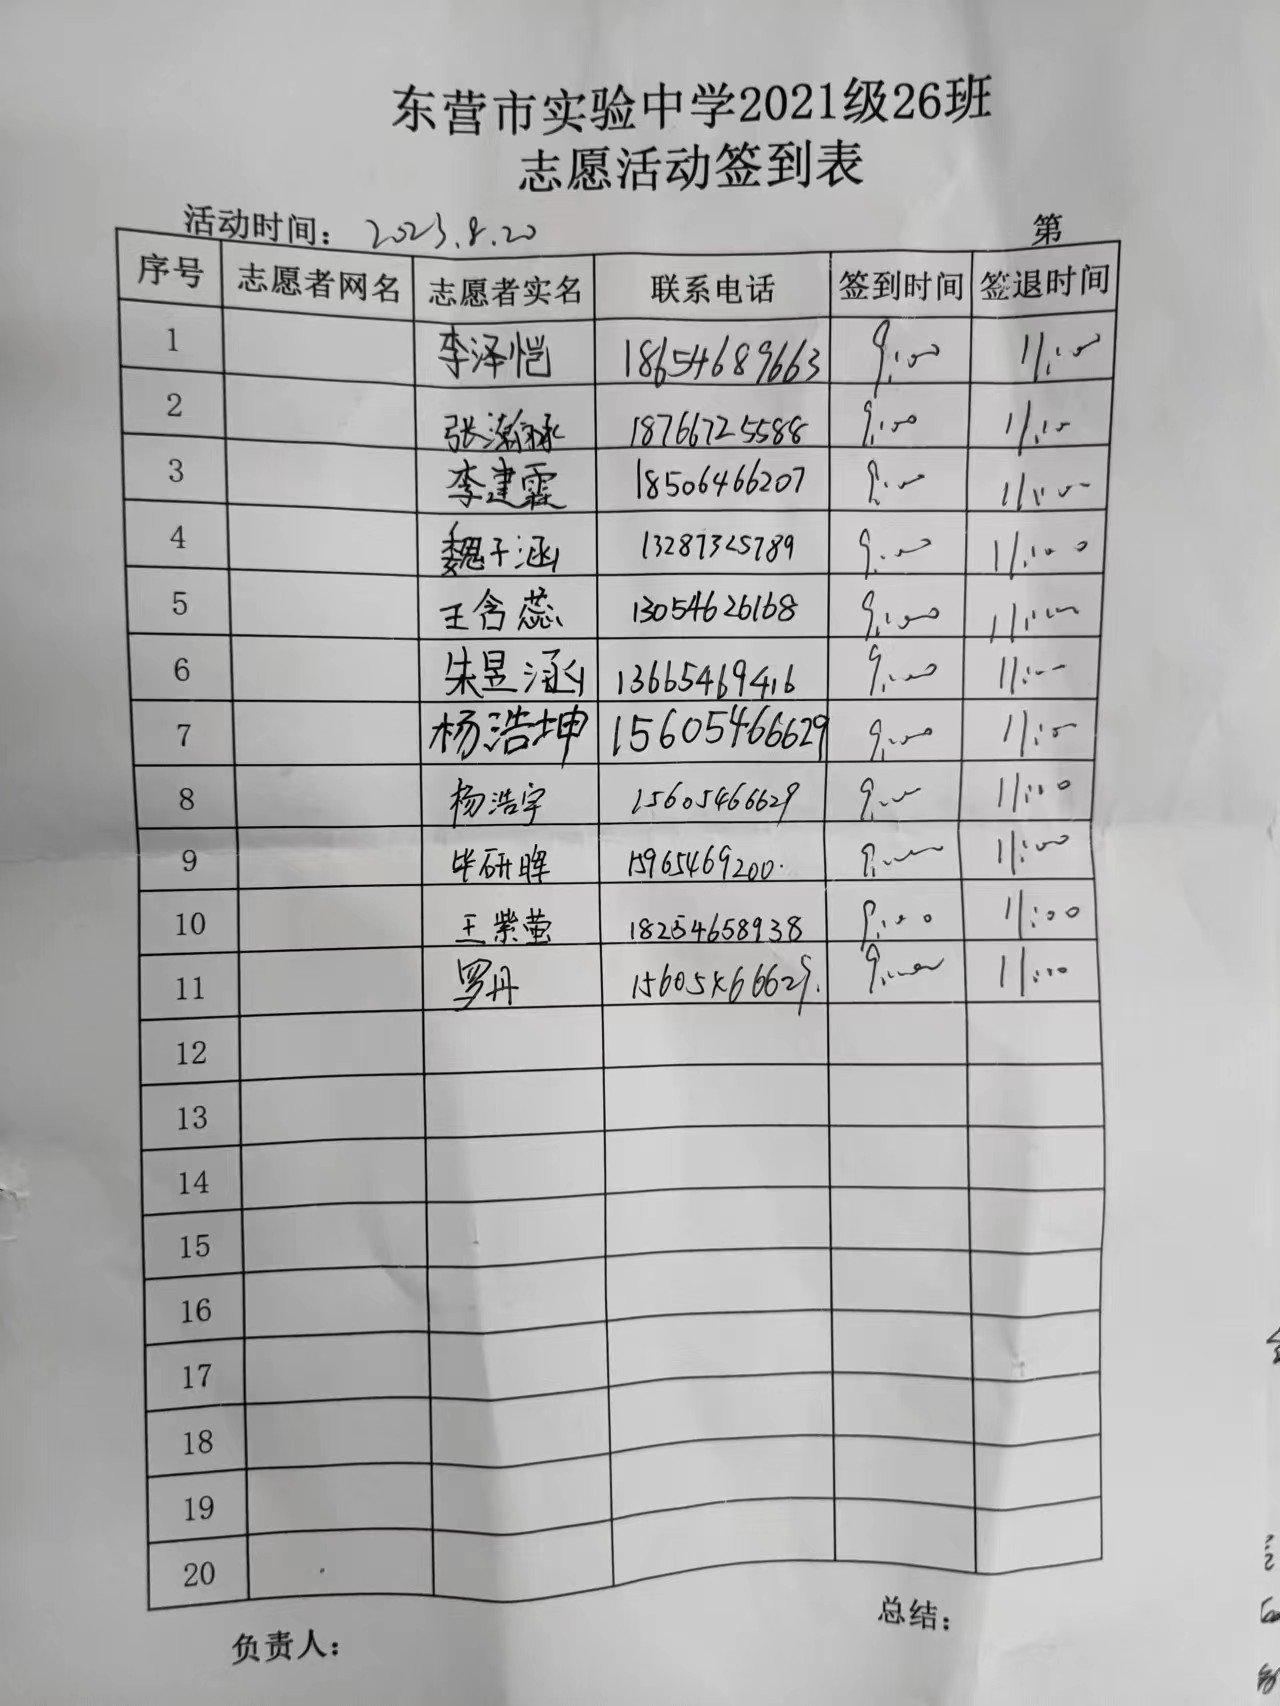 东营市实验中学2021级26班
志愿活动签到表
活动时间：2023.8.20 第
序号 志愿者网名 志愿者实名 联系电话 签到时间 签退时间
1 李泽恺 18654689663 9:00 11:00
2 张瀚 18766725588 9:00 11:00
3 李建霖 18506466207 9:00 11:00
4 魏子涵 13287325789 9:00 11:00
5 王含蕊 13054626168 9:00 11:00
6 朱昱涵 13665469416 9:00 11:00
7 杨浩坤 15605466629 9:00 11:00
8 杨浩宇 15605466629 9:00 11:00
9 毕研晖 15965469200 9:00 11:00
10 王紫萤 18254658938 9:00 11:00
11 罗丹 15605466629 9:00 11:00
12
13
14
15
16
17
18
19
20
负责人： 总结：